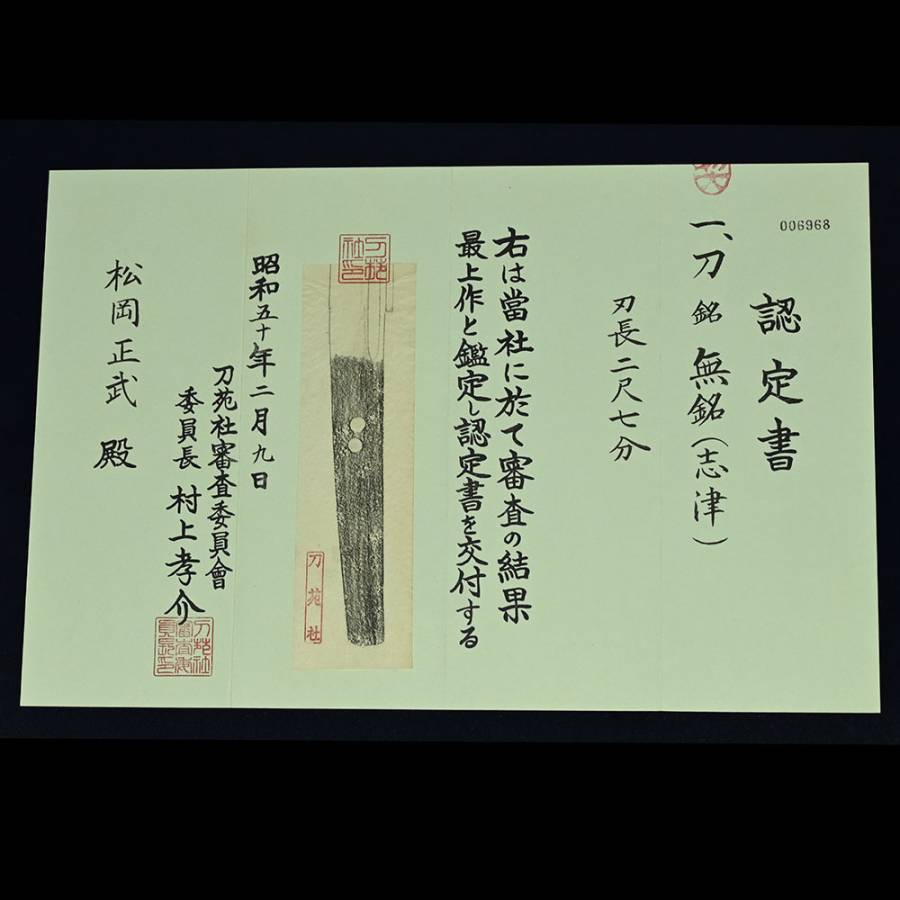 006968
認定書
一、刀 銘 無銘(志津)
刃長二尺七分
右は當社に於て審査の結果
最上作と鑑定し認定書を交付する
刀苑社印
刀苑社
昭和五十年二月九日
刀苑社審査委員會
委員長 村上孝介
松岡正武 殿